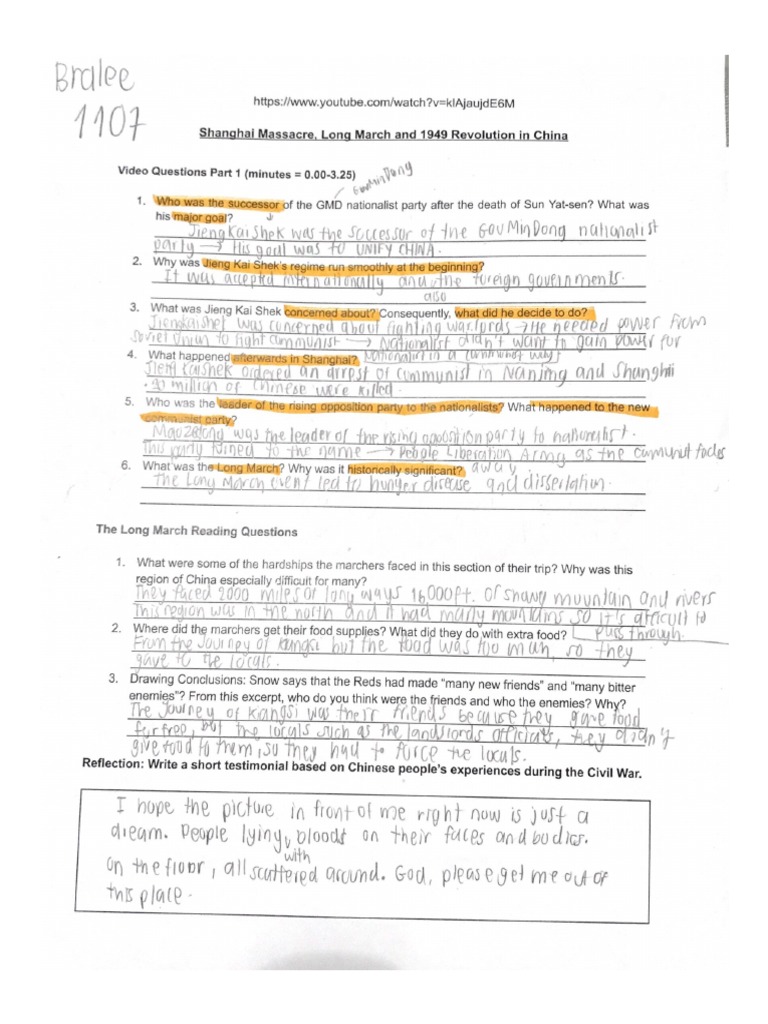 Bralee
1107
https://www.youtube.com/watch?v=klAjaujdE6M
Shanghai Massacre, Long March and 1949 Revolution in China
Video Questions Part 1 (minutes = 0.00-3.25)
GouMinDong
1. Who was the successor of the GMD nationalist party after the death of Sun Yat-sen? What was
his major goal?
Jiengkaishek was the soccesor of the GouMinDong nationalist
party → His goal was to UNIFY CHINA.
2. Why was Jieng Kai Shek's regime run smoothly at the beginning?
It was accepted internationally and the foreign governments.
also
3. What was Jieng Kai Shek concerned about? Consequently, what did he decide to do?
Jiengkaishek was concerned about fighting warlords → He needed power from
Soviet Union to fight communist → Nationalist didn't want to gain power for
4. What happened afterwards in Shanghai? Nationalist in a communist way
Jieng kaishek ordered an arrest of communist in Nanjing and Shanghii
million of Chinese were killed.
5. Who was the leader of the rising opposition party to the nationalists? What happened to the new
communist party?
Maozedong was the leader of the rising opposition party to nationalist.
This party turned to the name → People Liberation Army as the communit
6. What was the Long March? Why was it historically significant? away
The Long March event led to hunger disease and dissertation.
The Long March Reading Questions
1. What were some of the hardships the marchers faced in this section of their trip? Why was this
region of China especially difficult for many?
They faced 2000 miles of long ways 16000ft. of snowy muyntain and rivers
This region was in the north and it had many mountains so it's difficult to
2. Where did the marchers get their food supplies? What did they do with extra food? pass through.
From the Journey of Kangsi but the food was too muh, so they
gave to the locals.
3. Drawing Conclusions: Snow says that the Reds had made "many new friends" and "many bitter
enemies"? From this excerpt, who do you think were the friends and who the enemies? Why?
The Journey of Kiangsi was their friends because they gave food
for free, but the locals such as the landslords officials, they didn't
give food to them, so they had to force the locals.
Reflection: Write a short testimonial based on Chinese people's experiences during the Civil War.
I hope the picture in front of me right now is just a
dream. People lying, bloods on their faces and bodies.
with
on the floor, all scattered around. God, please get me out of
this place.